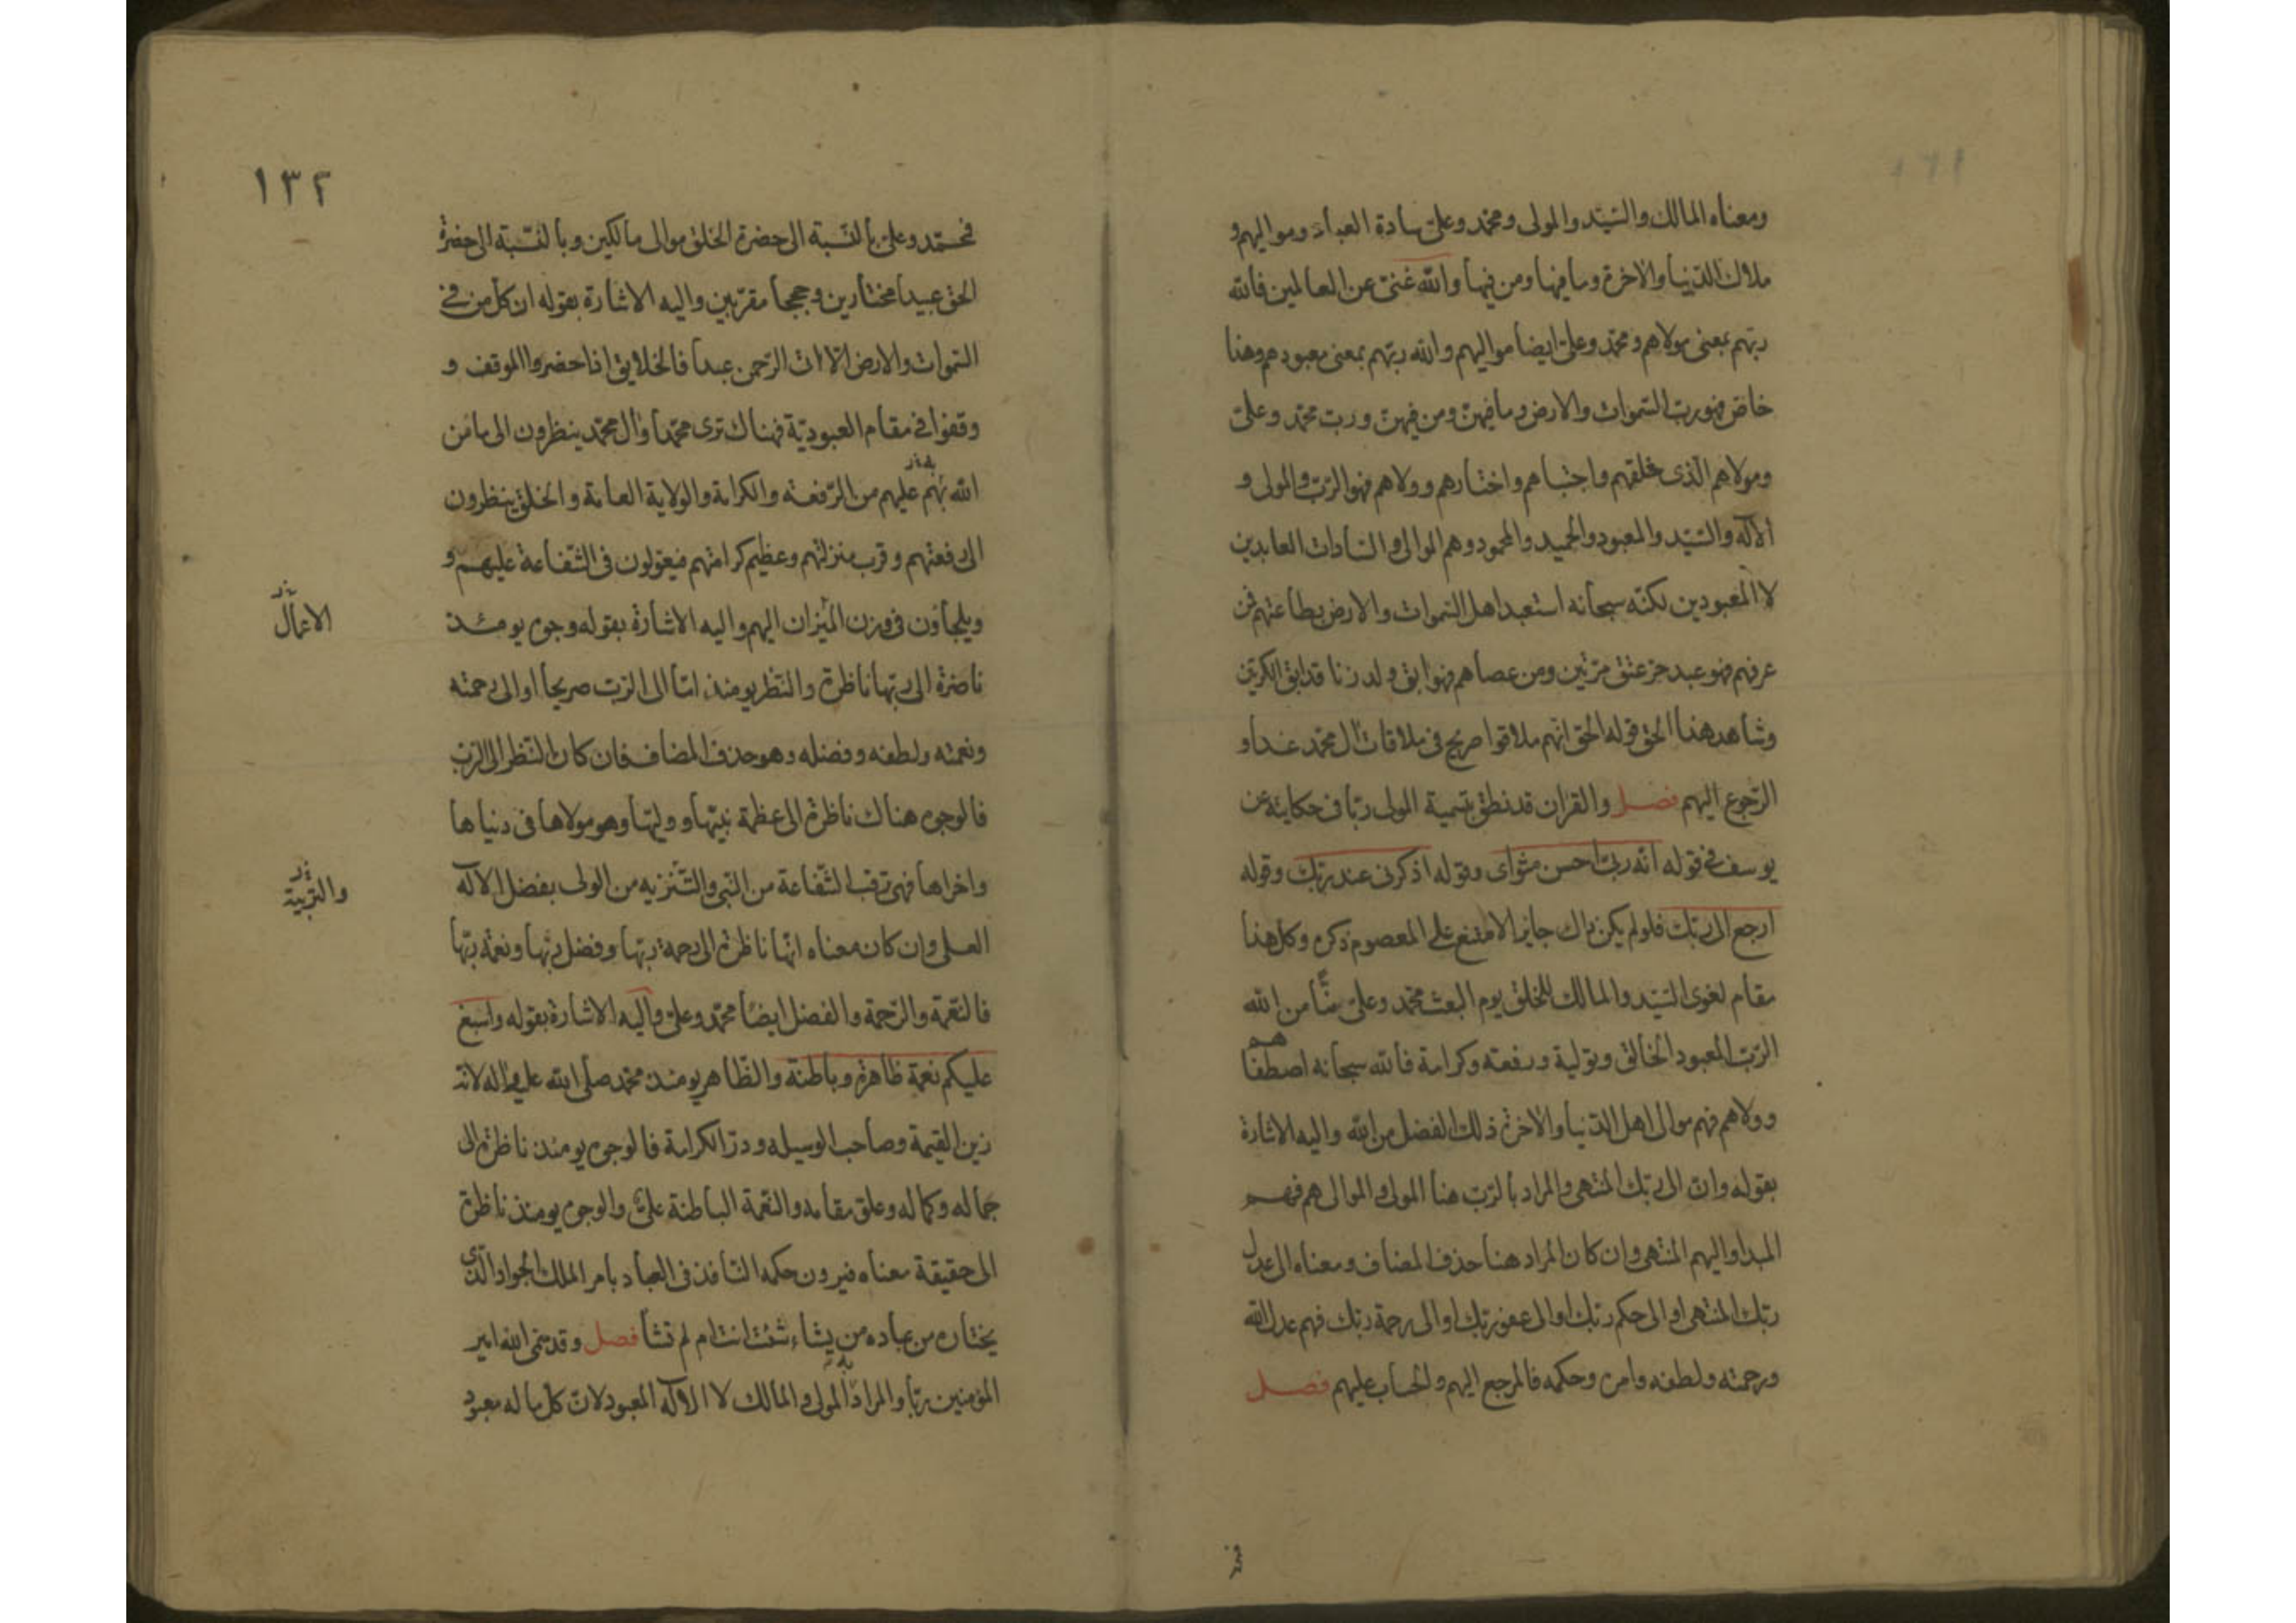 ومعناه المالك والسّيّد والمولى ومحمّد وعلىّ سادة العباد ومواليهم و
ملاك الدّنيا والاخرة وما فيها ومن فيها والله غنىّ عن العالمين فالله
ربّهم بمعنى مولاهم ومحمّد وعلىّ ايضا مواليهم والله ربّهم بمعنى معبودهم وهنا
خاصّ فهو ربّ السّموات والارض وما فيهنّ ومن فيهنّ وربّ محمّد وعلىّ
ومولاهم الّذى خلقهم واجتباهم واختارهم وولاهم فهو الرّبّ والمولى و
الاله والسّيّد والمعبود والحميد والمحمود وهم الموالى والسّادات العابدين
لا المعبودين لكنّه سبحانه استعبد اهل السّموات والارض بطاعتهم فمن
عرفهم فهو عبد حرّ عتق مرّتين ومن عصاهم فهو ابق ولد زنا قد ابق الكرّتين
وشاهد هذا الحقّ قوله الحقّ انّهم ملاقوا صريح فى ملاقات ال محمّد غدا و
الرّجوع اليهم فصل والقران قد نطق بتسمية المولى ربّا فى حكاية عن
يوسف فى قوله انّه ربّى احسن مثواى وقوله اذكرنى عند ربّك وقوله
ارجع الى ربّك فلو لم يكن ذاك جايز الامتنع على المعصوم ذكره وكل هذا
مقام لغوى السّيّد والمالك للخلق يوم البعث محمّد وعلىّ منّا من الله
الرّبّ المعبود الخالق وتولية ورفعته وكرامة فالله سبحانه اصطفاهم
وولاهم فهم موالى اهل الدّنيا والاخرة ذلك الفضل من الله واليه الاشارة
بقوله وانّ الى ربّك المنتهى والمراد بالرّبّ هنا المولى والموالى هم فهم
المبدا واليهم المنتهى وان كان المراد هنا حذف المضاف ومعناه الى عدل
ربّك المنتهى او الى حكم ربّك او الى عفو ربّك او الى رحمة ربّك فهم عدل الله
ورحمته ولطفه وامره وحكمه فالمرجع اليهم والحساب عليهم فصل
١٣٢
فمحمّد وعلىّ بالنّسبة الى حضرة الخلق موالى مالكين وبالنّسبة الى حضرة
الحقّ عبيدا مختارين وحججا مقرّبين واليه الاشارة بقوله ان كل من فى
السّموات والارض الّا اتى الرّحمن عبدا فالخلايق اذا حضروا الموقف و
وقفوا فى مقام العبوديّة فهناك ترى محمّدا وال محمّد ينظرون الى ما منّ
الله بهم عليهم من الرّفعة والكرامة والولاية العامة والخلق ينظرون
الى رفعتهم وقرب منزلتهم وعظيم كرامتهم فيعولون فى الشّفاعة عليهم و
ويلجأون فى وزن الميزان اليهم واليه الاشارة بقوله وجوه يومئذ
الاعمال
ناضرة الى ربّها ناظرة والنّظر يومئذ امّا الى الرّبّ صريحا او الى رحمته
ونعمته ولطفه وفضله وهو حذف المضاف فان كان النّظر الى الرّبّ
فالوجوه هناك ناظرة الى عظمة نبيّها ووليّها وهو مولاها فى دنياها
واخراها فهى ترقب الشّفاعة من النّبى والتّنزيه من الولى بفضل الاله
والتّربية
العلى وان كان معناه انّها ناظرة الى رحمة ربّها وفضل ربّها ونعمة ربّها
فالنّعمة والرّحمة والفضل ايضا محمّد وعلىّ واليه الاشارة بقوله واسبغ
عليكم نعمة ظاهرة وباطنة والظّاهر يومئذ محمّد صلى الله عليه واله لانّه
زين القيمة وصاحب الوسيله ودرّ الكرامة فالوجوه يومئذ ناظرة الى
جماله وكماله وعلوّ مقامه والنّعمة الباطنة علىّ والوجوه يومئذ ناظرة
الى حقيقة معناه فيرون حكمه النّافذ فى العباد بامر الملك الجواد الّذى
يختاره من عباده من يشاء شئت انت ام لم تشأ فصل وقد سمّى الله امير
المؤمنين ربّا والمراد المولى والمالك لا الاله المعبود لانّ كل ما له معبود